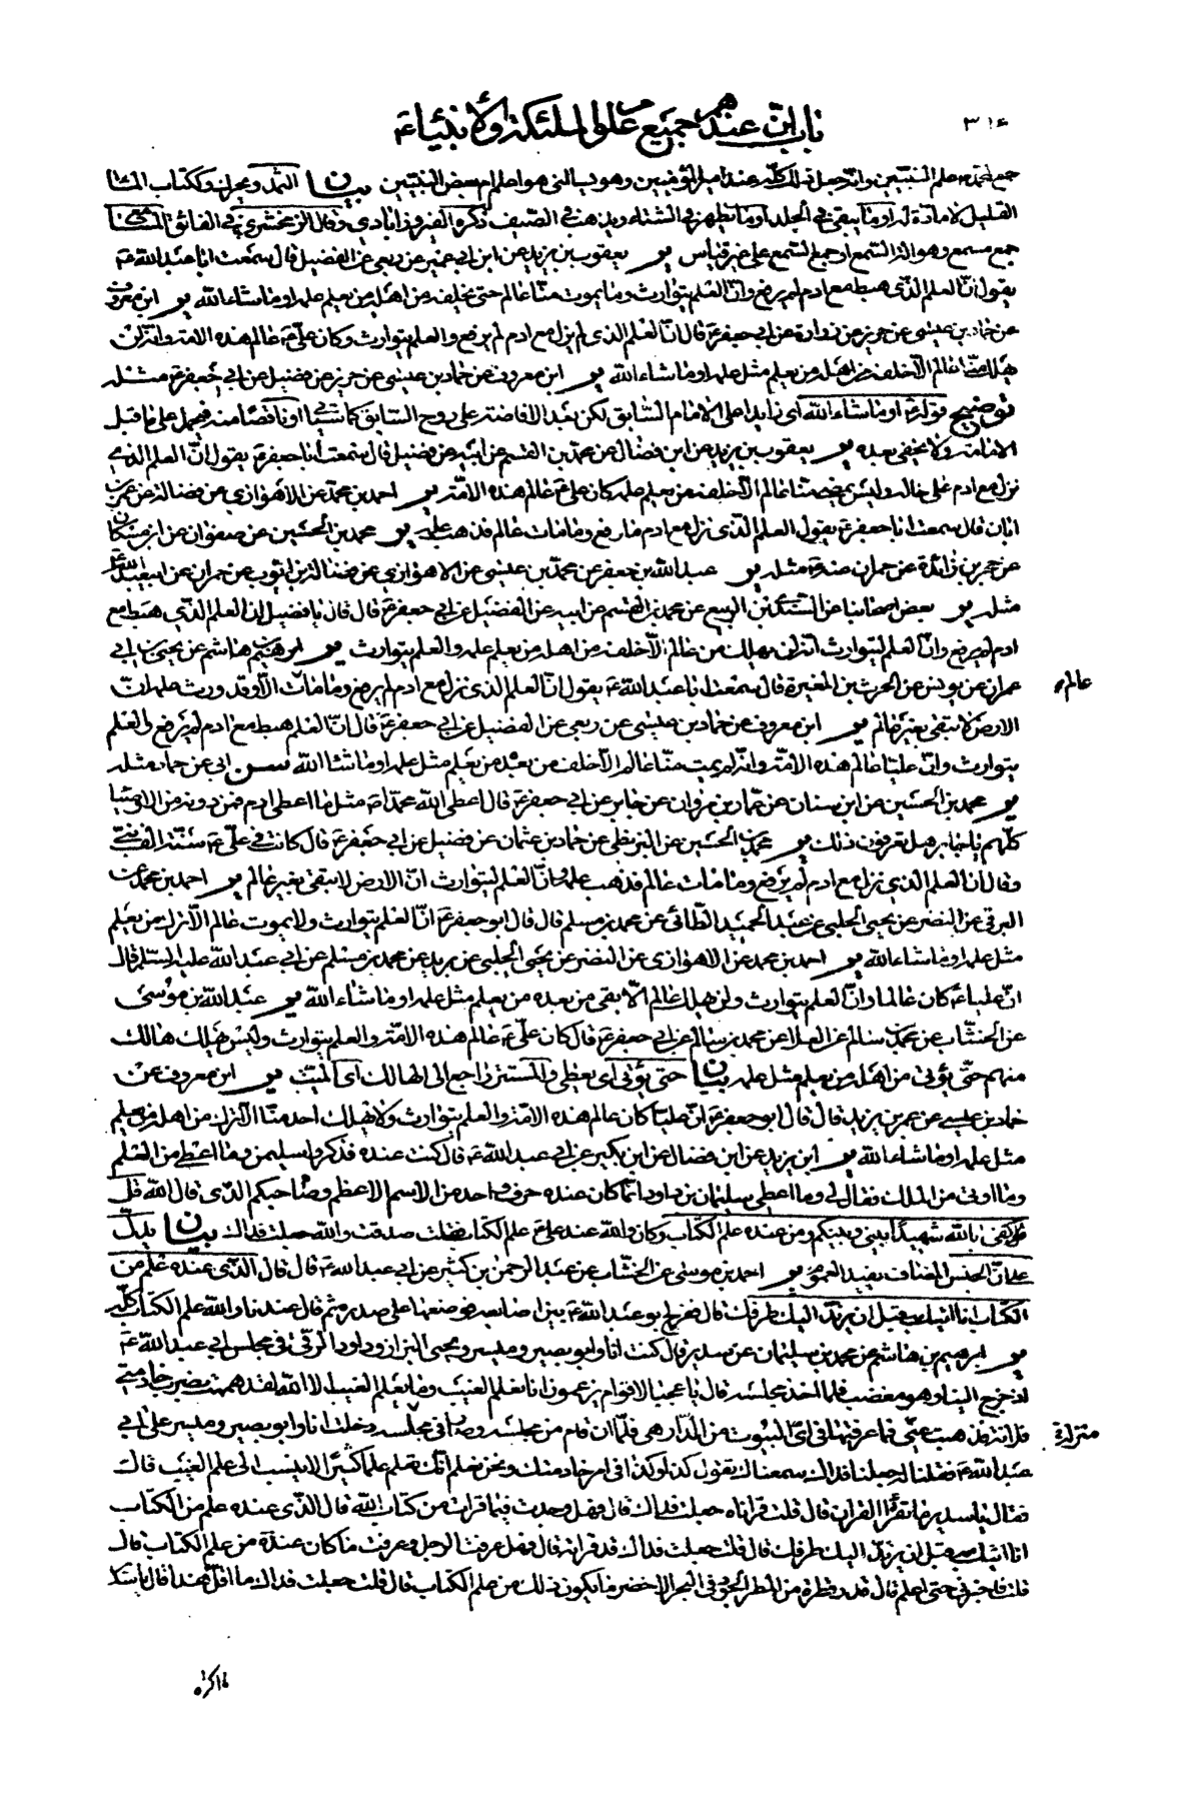 ٣١٤
باب ان عندهم جميع علوم الملئكة والأنبياء ع
جمع لمحمد ص علم النبيين وانه جعل ذلك كله عند امير المؤمنين وهو يسالني هو اعلم ام بعض النبيين بيان الثمد ويحرك وككتاب الماء
القليل لا مادة له او ما يبقى في الجلد او ما يظهر في الشتاء ويذهب في الصيف ذكره الفيروزابادي وقال الزمخشري في الفائق
جمع مسمع وهو الة السمع او جمع السمع على غير قياس ير يعقوب بن يزيد عن ابن ابي عمير عن ربعي عن الفضيل قال سمعت ابا عبد الله ع
يقول ان العلم الذي هبط مع ادم لم يرفع وان العلم يتوارث وما يموت منا عالم حتى يخلفه من اهله من يعلم علمه او ما شاء الله ير ابن معروف
عن حماد بن عيسى عن حريز عن زرارة عن ابي جعفر ع قال ان العلم الذي لم يزل مع ادم لم يرفع والعلم يتوارث وكان علي ع عالم هذه الامة وانه لن
يهلك منا عالم الا خلفه من اهله من يعلم مثل علمه او ما شاء الله ير ابن معروف عن حماد بن عيسى عن حريز عن فضيل عن ابي جعفر ع مثله
توضيح قوله ع او ما شاء الله اى زايدا على الامام السابق لكن بعد الافاضة على روح السابق كما سيأتي او ناقصا منه فيحمل على ما قبل
الامامة ولا يخفى بعده ير يعقوب بن يزيد عن ابن فضال عن محمد بن القسم عن ابيه عن فضيل قال سمعت ابا جعفر ع يقول ان العلم الذي
نزل مع ادم على حاله وليس يمضي منا عالم الا خلفه من يعلم علمه كان علي ع عالم هذه الامة ير احمد بن محمد عن الاهوازي عن فضالة عن عمر بن
ابان قال سمعت ابا جعفر ع يقول العلم الذي نزل مع ادم ما رفع وما مات عالم فذهب علمه ير محمد بن الحسين عن صفوان عن ابن مسكان
عن حجر بن زائدة عن حمران عنه ع مثله ير عبد الله بن جعفر عن محمد بن عيسى عن الاهوازي عن فضالة بن ايوب عن حمران عن ابي عبد الله ع
مثله ير بعض اصحابنا عن السندي بن الربيع عن محمد بن القسم عن ابيه عن الفضيل عن ابي جعفر ع قال قال يا فضيل ان العلم الذي هبط مع
ادم لم يرفع وان العلم ليتوارث انه لن يهلك من عالم الا خلفه من اهله من يعلم علمه والعلم يتوارث ير ابراهيم بن هاشم عن يحيى بن ابي
عمران عن يونس عن الحرث بن المغيرة قال سمعت ابا عبد الله ع يقول ان العلم الذي نزل مع ادم لم يرفع وما مات الا وقد ورث علمه ان
عالم
الارض لا تبقى بغير عالم ير ابن معروف عن حماد بن عيسى عن ربعي عن الفضيل عن ابي جعفر ع قال ان العلم هبط مع ادم لم يرفع والعلم
يتوارث وان عليا عالم هذه الامة وانه لم يمت منا عالم الا خلف من بعده من يعلم مثل علمه او ما شاء الله سن ابي عن حماد مثله
ير محمد بن الحسين عن ابن سنان عن عمار بن مروان عن جابر عن ابي جعفر ع قال اعطى الله محمدا ص مثل ما اعطى ادم فمن دونه من الاوصياء
كلهم يا جابر هل تعرفون ذلك ير محمد بن الحسين عن البزنطي عن حماد بن عثمان عن فضيل عن ابي جعفر ع قال كانت في علي ع سنة الف نبي
وقال ان العلم الذي نزل مع ادم لم يرفع وما مات عالم فذهب علمه وان العلم ليتوارث ان الارض لا تبقى بغير عالم ير احمد بن محمد عن
البرقي عن النضر عن يحيى الحلبي عن عبد الحميد الطائي عن محمد بن مسلم قال قال ابو جعفر ع ان العلم يتوارث ولا يموت عالم الا ترك من يعلم
مثل علمه او ما شاء الله ير احمد بن محمد عن الاهوازي عن النضر عن يحيى الحلبي عن بريد عن محمد بن مسلم عن ابي عبد الله عليه السلام قال
ان عليا ع كان عالما وان العلم يتوارث ولن يهلك عالم الا بقى من بعده من يعلم مثل علمه او ما شاء الله ير عبد الله بن موسى
عن الخشاب عن محمد بن سالم عن العلا عن محمد بن سالم عن ابي جعفر ع قال كان علي ع عالم هذه الامة والعلم يتوارث وليس يهلك هالك
منهم حتى يؤتى من اهله من يعلم مثل علمه بيان حتى يؤتى اى يعطى والمستتر راجع الى الهالك اى الميت ير ابن معروف عن
حماد بن عيسى عن عمر بن يزيد قال قال ابو جعفر ع ان عليا كان عالم هذه الامة والعلم يتوارث ولا يهلك احد منا الا ترك من اهله من يعلم
مثل علمه او ما شاء الله ير ابن يزيد عن ابن فضال عن ابن بكير عن ابي عبد الله ع قال كنت عنده فذكروا سليمن وما اعطي من العلم
وما اوتي من الملك فقال لي وما اعطي سليمان بن داود انما كان عنده حرف واحد من الاسم الاعظم وصاحبكم الذي قال الله قل
كفى بالله شهيدا بيني وبينكم ومن عنده علم الكتاب وكان والله عند علي ع علم الكتاب فقلت صدقت والله جعلت فداك بيان يدل
على ان الجنس المضاف يفيد العموم ير احمد بن موسى عن الخشاب عن عبد الرحمن بن كثير عن ابي عبد الله ع قال قال الذي عنده علم من
الكتاب انا اتيك به قبل ان يرتد اليك طرفك قال ففرج ابو عبد الله ع بين اصابعه فوضعها على صدره ثم قال عندنا والله علم الكتاب كله
ير ابراهيم بن هاشم عن محمد بن سليمان عن سدير قال كنت انا وابو بصير وميسر ويحيى البزاز وداود الرقي في مجلس ابي عبد الله ع
اذ خرج الينا وهو مغضب فلما اخذ مجلسه قال يا عجبا لاقوام يزعمون انا نعلم الغيب وما يعلم الغيب الا الله لقد هممت بضرب خادمتي
فلانة فذهبت عني فما عرفتها في اي البيوت من الدار هي فلما ان قام من مجلسه وصار في مجلسه دخلت انا وابو بصير وميسر على ابي
منزله
عبد الله ع فقلنا له جعلنا فداك سمعناك تقول كذا وكذا في امر خادمتك ونحن نعلم انك تعلم علما كثيرا لا ينسب الى علم الغيب قال
فقال يا سدير ما تقرأ القران قال قلت قراناه جعلت فداك قال فهل وجدت فيما قرات من كتاب الله قال الذي عنده علم من الكتاب
انا اتيك به قبل ان يرتد اليك طرفك قال قلت جعلت فداك قد قراته قال فهل عرفت الرجل وعرفت ما كان عنده من علم الكتاب قال
قلت فاخبرني حتى اعلم قال قدر قطرة من المطر الجود في البحر الاخضر ما يكون ذلك من علم الكتاب قال قلت جعلت فداك ما اقل هذا قال يا سدير
ما اكثره